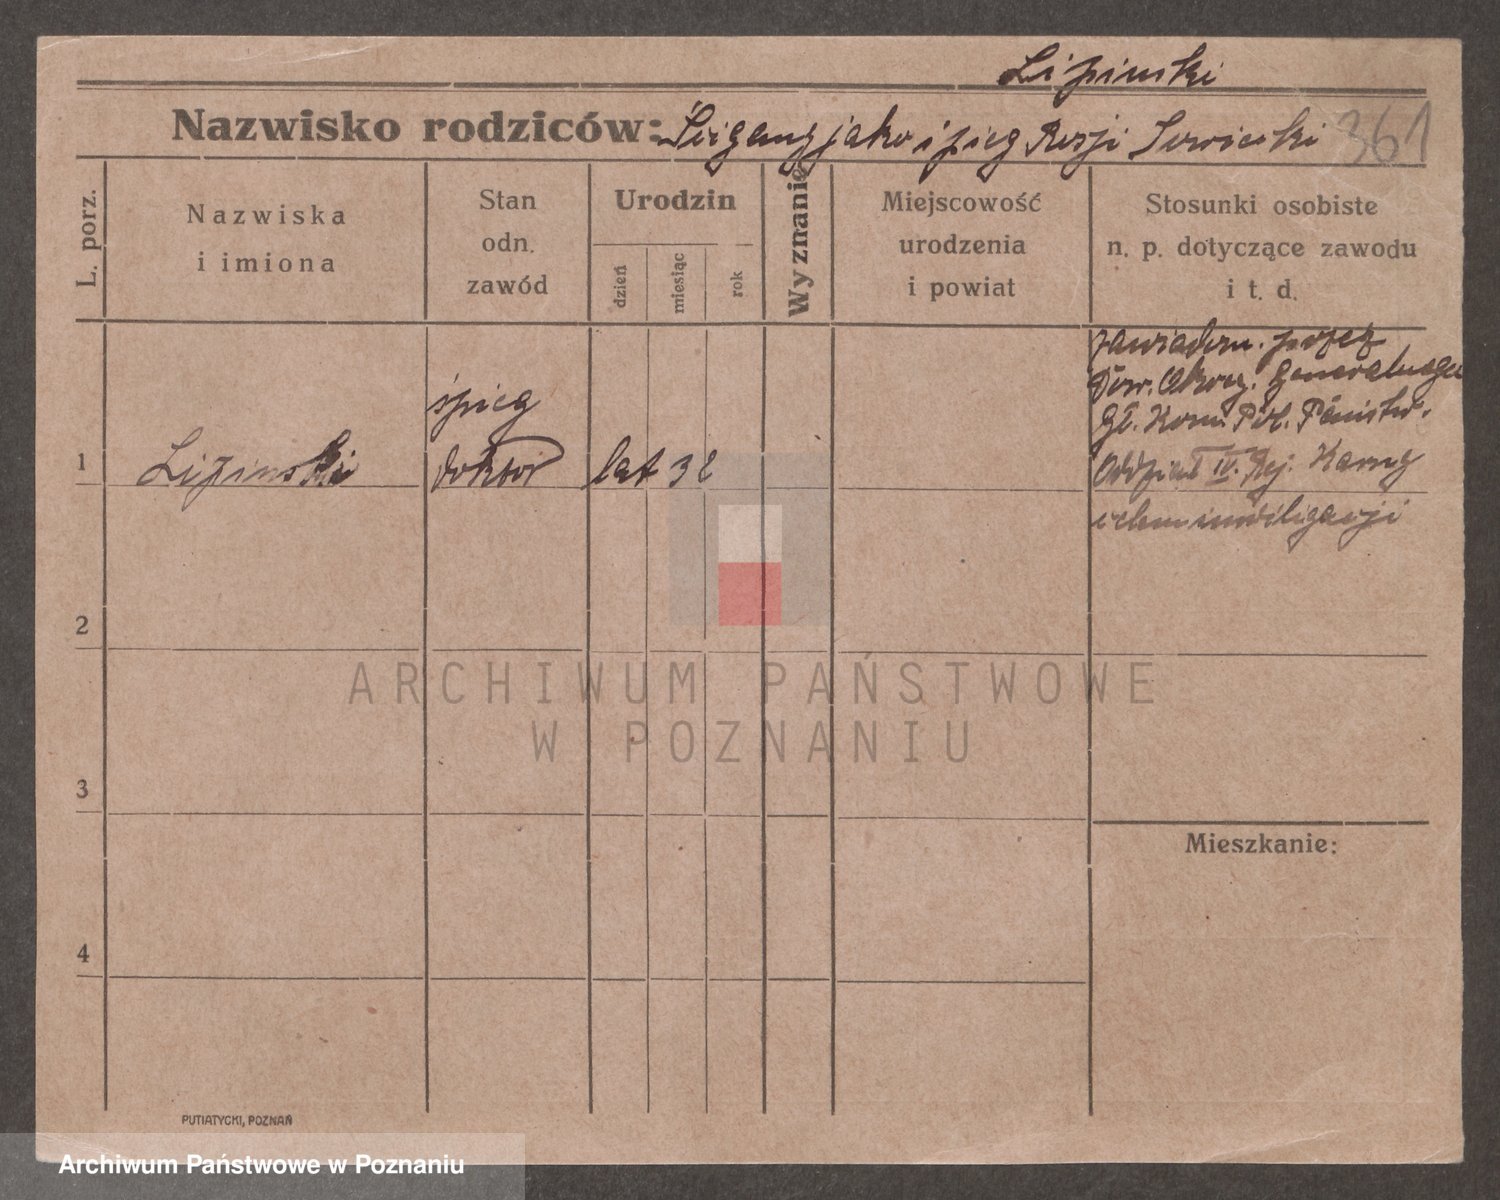 Lipinski
Nazwisko rodziców: Ścigany jako śpieg Rosji Sowiecki 361
L. porz.
Nazwiska
i imiona
Stan
odn.
zawód
Urodzin
dzień
miesiąc
rok
Wyznanie
Miejscowość
urodzenia
i powiat
Stosunki osobiste
n. p. dotyczące zawodu
i t. d.
1
Lipinski
śpieg
doktor
lat 32
zawiadom. przez
Dow. Okręg. Generalnego
Gł. Kom. Pol. Państw.
Oddział IV. Rej. Karny
celem inwiligacji
2
3
4
Mieszkanie:
PUTIATYCKI, POZNAŃ
ARCHIWUM PAŃSTWOWE
W POZNANIU
Archiwum Państwowe w Poznaniu